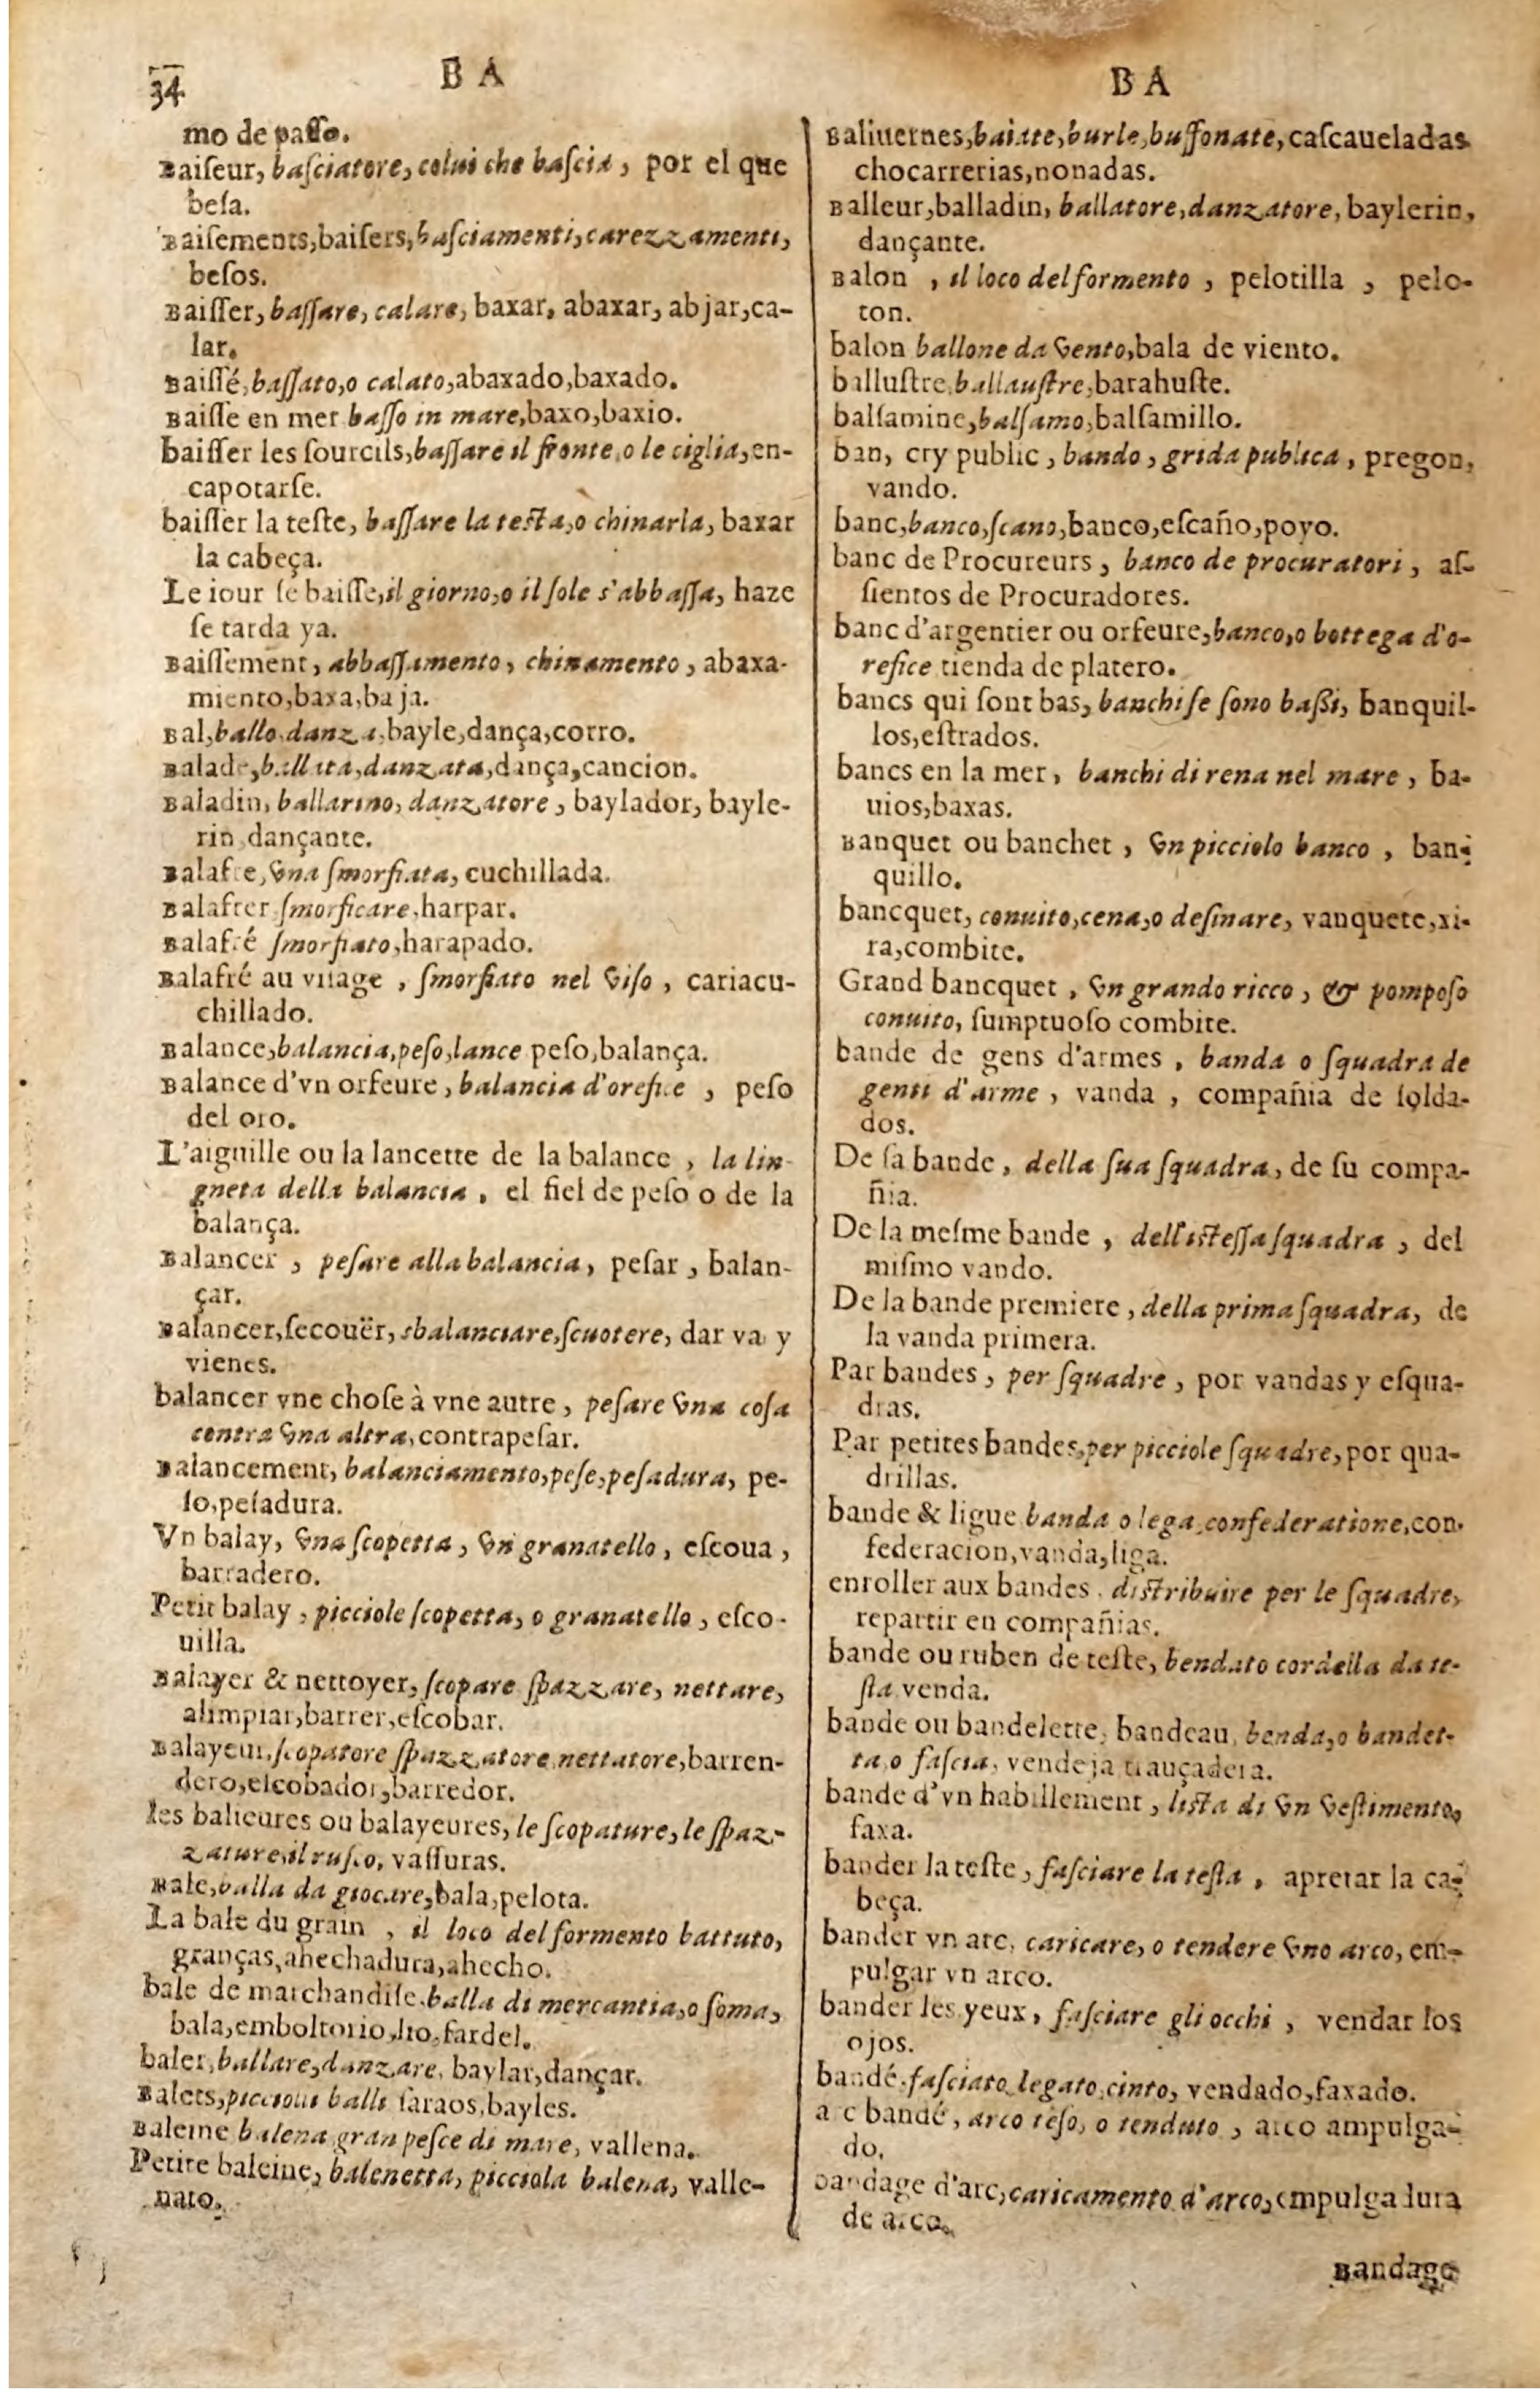 34
BA
mo de passo.
Baiſeur, baſciatore, colui che baſcia, por el que
beſa.
Baiſements, baiſers, baſciamenti, carezzamenti,
beſos.
Baiſſer, baſſare, calare, baxar, abaxar, abjar, ca-
lar.
Baiſſé, baſſato, o calato, abaxado, baxado.
Baiſſe en mer baſſo in mare, baxo, baxio.
baiſſer les ſourcils, baſſare il fronte, o le ciglia, en-
capotarſe.
baiſſer la teſte, baſſare la teſta, o chinarla, baxar
la cabeça.
Le iour ſe baiſſe, il giorno, o il ſole s'abbaſſa, haze
ſe tarda ya.
Baiſſement, abbaſſamento, chinamento, abaxa-
miento, baxa, baja.
Bal, ballo, danza, bayle, dança, corro.
Balade, ballata, danzata, dança, cancion.
Baladin, ballarino, danzatore, baylador, bayle-
rin, dançante.
Balafre, vna ſmorfiata, cuchillada.
Balafrer ſmorficare, harpar.
Balafré ſmorfiato, harapado.
Balafré au viſage, ſmorfiato nel viſo, cariacu-
chillado.
Balance, balancia, peſo, lance peſo, balança.
Balance d'vn orfeure, balancia d'orefice, peſo
del oro.
L'aiguille ou la lancette de la balance, la lin-
gneta della balancia, el fiel de peſo o de la
balança.
Balancer, peſare alla balancia, peſar, balan-
çar.
Balancer, ſecouër, sbalanciare, ſcuotere, dar va y
vienes.
balancer vne choſe à vne autre, peſare vna coſa
contra vna altra, contrapeſar.
Balancement, balanciamento, peſe, peſadura, pe-
ſo, peſadura.
Vn balay, vna ſcopetta, vn granatello, eſcoua,
barradero.
Petit balay, picciole ſcopetta, o granatello, eſco-
uilla.
Balayer & nettoyer, ſcopare ſpazzare, nettare,
alimpiar, barrer, eſcobar.
Balayeur, ſcopatore ſpazzatore, nettatore, barren-
dero, eſcobador, barredor.
les balieures ou balayeures, le ſcopature, le ſpaz-
zature, il ruſco, vaſſuras.
Bale, balla da giocare, bala, pelota.
La bale du grain, il loco del formento battuto,
granças, ahechadura, ahecho.
bale de marchandiſe, balla di mercantia, o ſoma,
bala, emboltorio, lio, fardel.
baler, ballare, danzare, baylar, dançar.
Balets, piccioli balli ſaraos, bayles.
Baleine balena gran peſce di mare, vallena.
Petite baleine, balenetta, picciola balena, valle-
nato.
BA
Baliuernes, baiate, burle, buffonate, caſcaueladas
chocarrerias, nonadas.
Balleur, balladin, ballatore, danzatore, baylerin,
dançante.
Balon, il loco del formento, pelotilla, pelo-
ton.
balon ballone da vento, bala de viento.
balluſtre, ballauſtre, barahuſte.
balſamine, balſamo, balſamillo.
ban, cry public, bando, grida publica, pregon,
vando.
banc, banco, ſcano, banco, eſcaño, poyo.
banc de Procureurs, banco de procuratori, aſ-
ſientos de Procuradores.
banc d'argentier ou orfeure, banco, o bottega d'o-
refice tienda de platero.
bancs qui ſont bas, banchi ſe ſono baßi, banquil-
los, eſtrados.
bancs en la mer, banchi di rena nel mare, ba-
uios, baxas.
Banquet ou banchet, vn picciolo banco, ban-
quillo.
bancquet, conuito, cena, o deſinare, vanquete, xi-
ra, combite.
Grand bancquet, vn grando ricco, & pompoſo
conuito, ſumptuoſo combite.
bande de gens d'armes, banda o ſquadra de
genti d'arme, vanda, compañia de ſolda-
dos.
De ſa bande, della ſua ſquadra, de ſu compa-
ñia.
De la meſme bande, dell'isteſſa ſquadra, del
miſmo vando.
De la bande premiere, della prima ſquadra, de
la vanda primera.
Par bandes, per ſquadre, por vandas y eſqua-
dras.
Par petites bandes, per picciole ſquadre, por qua-
drillas.
bande & ligue banda o lega, confederatione, con-
federacion, vanda, liga.
enroller aux bandes, distribuire per le ſquadre,
repartir en compañias.
bande ou ruben de teſte, bendato cordella da te-
ſta venda.
bande ou bandelette, bandeau, benda, o bandet-
ta, o faſcia, vendeja trauçadera.
bande d'vn habillement, lista di vn veſtimento,
faxa.
bander la teſte, faſciare la teſta, apretar la ca-
beça.
bander vn arc, caricare, o tendere vno arco, em-
pulgar vn arco.
bander les yeux, faſciare gli occhi, vendar los
ojos.
bandé, faſciato legato, cinto, vendado, faxado.
arc bandé, arco teſo, o tenduto, arco ampulga-
do.
bandage d'arc, caricamento d'arco, empulgadura
de arco.
Bandage